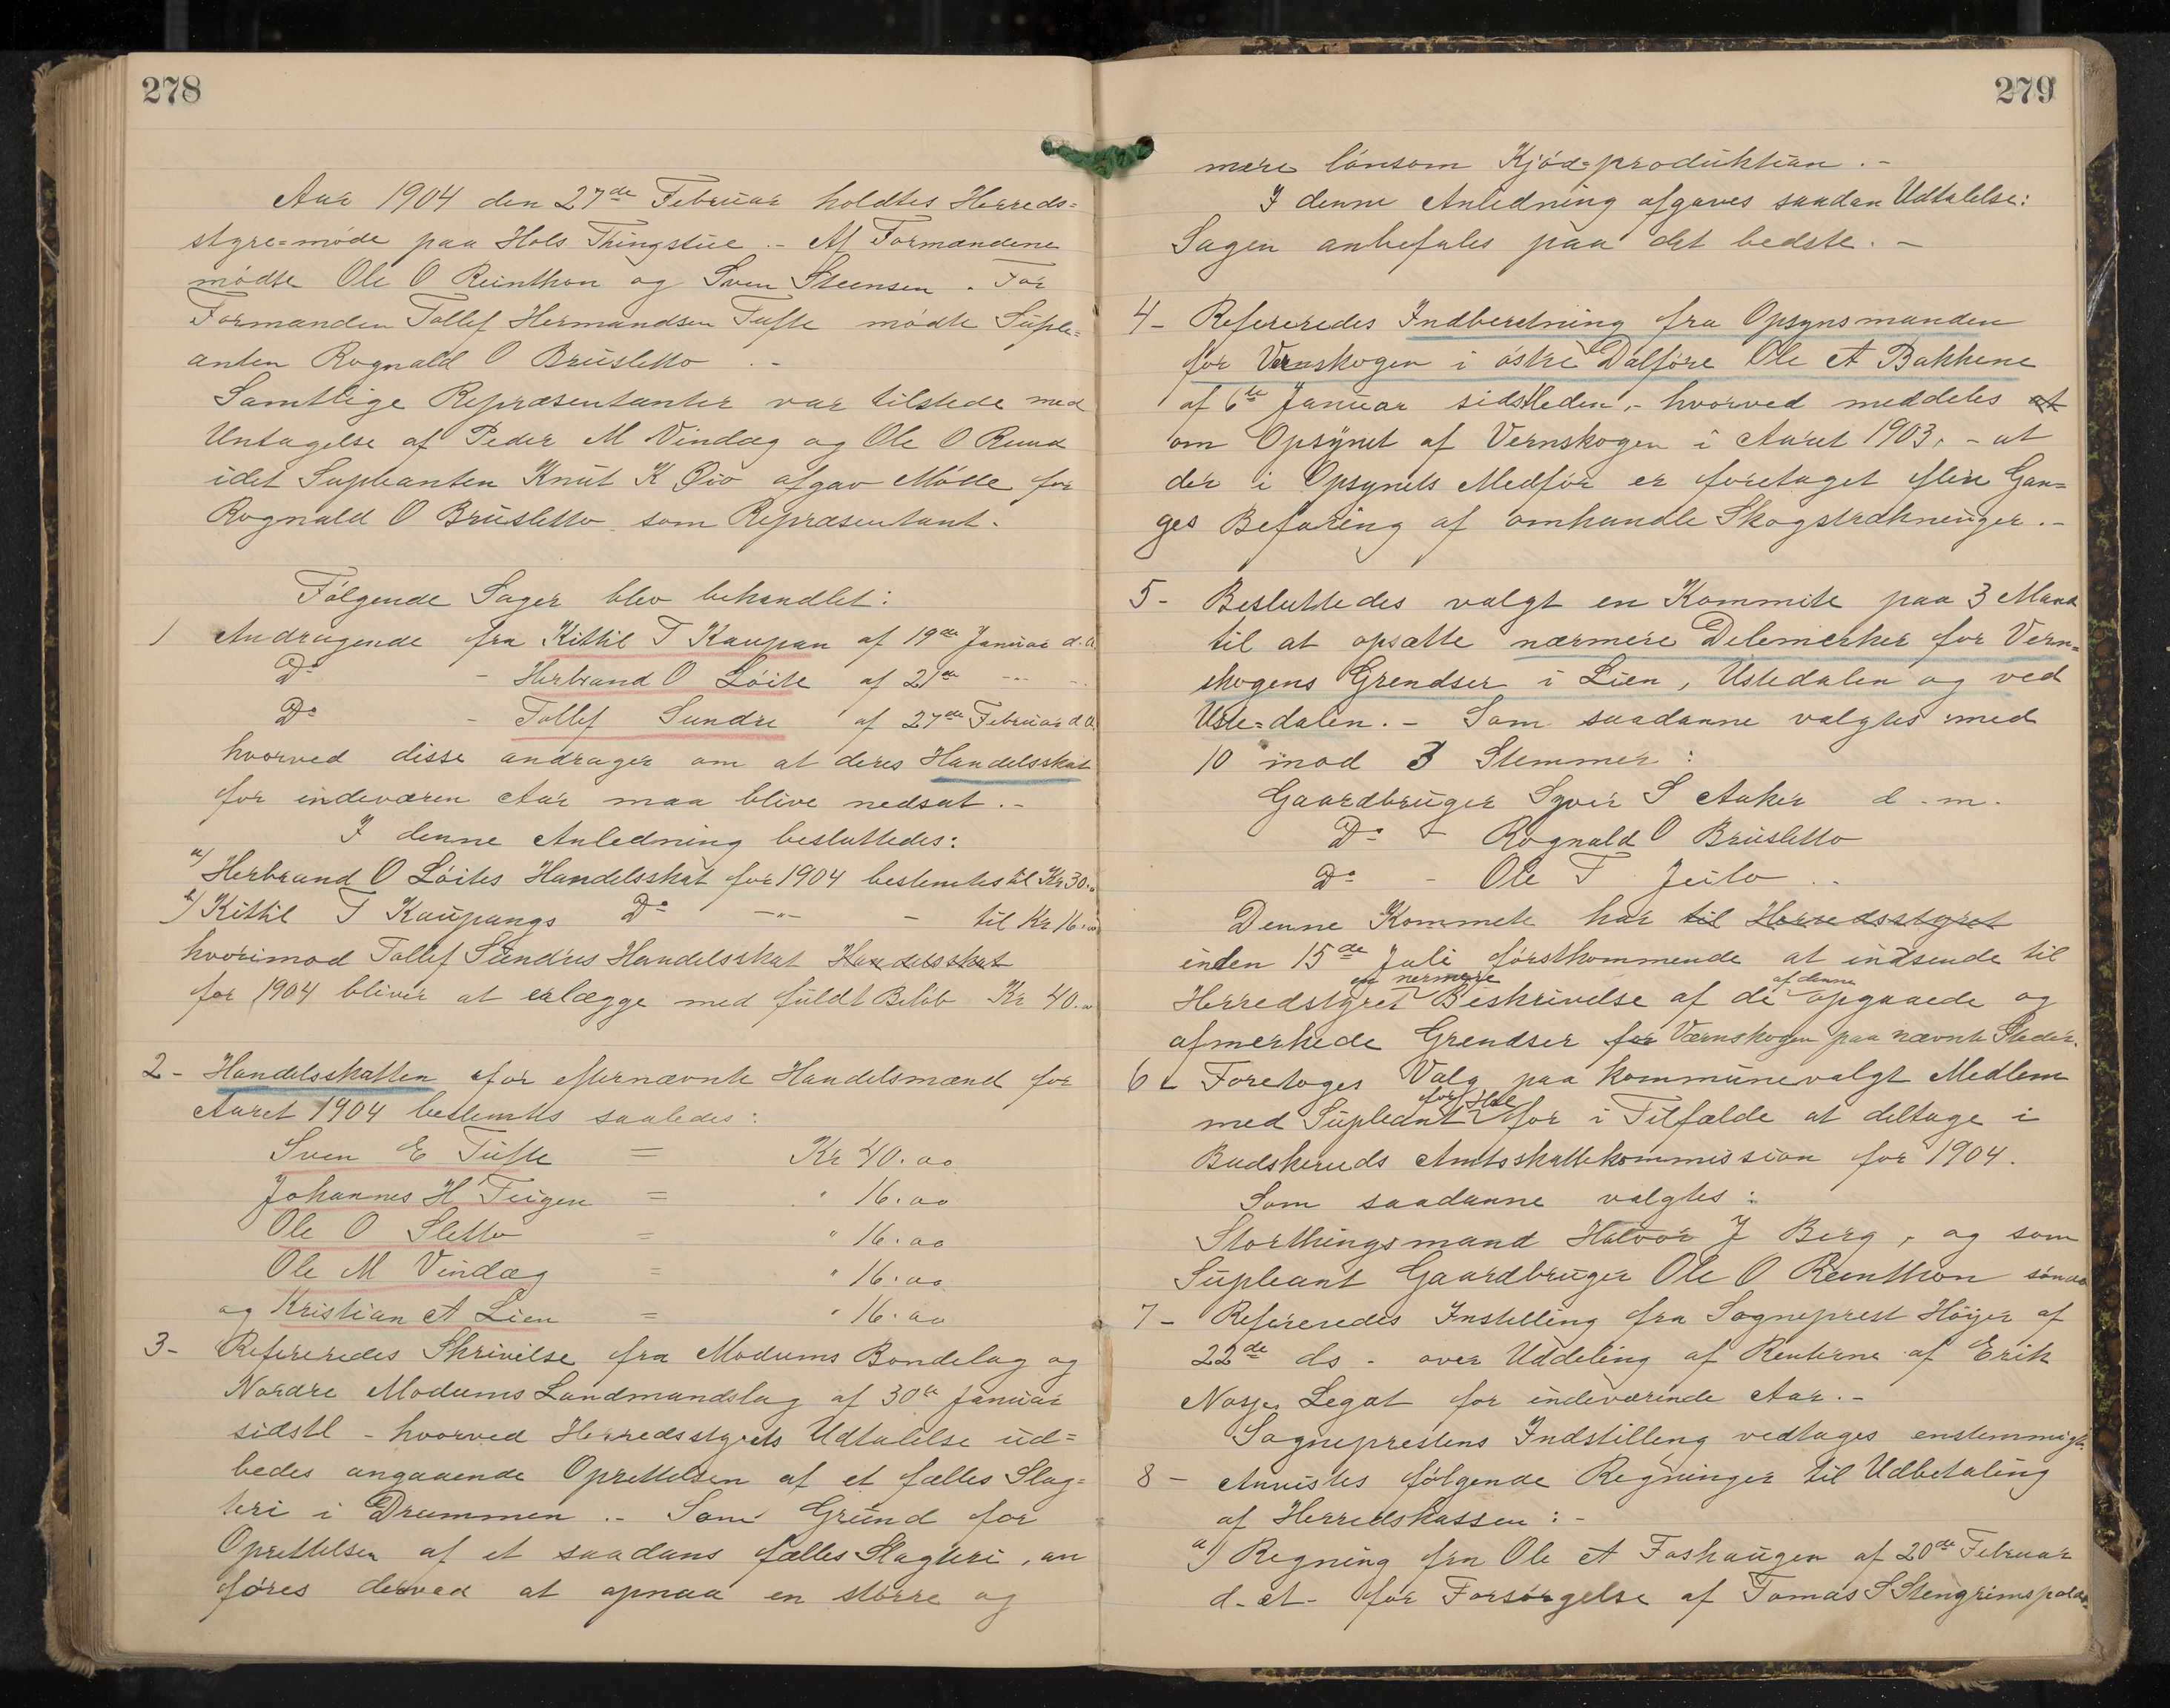 278
Aar 1904 den 27de Februar holdtes Herreds=
styre=møde paa Hols Thingstue .- Af Formændene
mødte Ole O Reinthon og Sven Steensen . For
Formanden Tollef Hermandsen Tufte mødte Suple=
anten Rognald O Brusletto .-
Samtlige Repræsentanter var tilstede med
Untagelse af Peder M Vindæg og Ole O Ruud
idet Supleanten Knut K Øio afgav Møde for
Rognald O Brusletto som Repræsentant.
Følgende Sager blev behandlet:
1 Andragende fra Kittil T Kaupan af 19de Januar d.A
Do - Herbrand O Løite af 21de -"- -
Do - Tollef Sundre af 27de Februar d.A.
hvorved disse andrager om at deres Handelsskat
for indeværen Aar maa blive nedsat .-
I denne Anledning besluttedes:
a) Herbrand O Løites Handelsskat for 1904 bestemtes til Kr 30.00
b) Kittil T Kaupangs Do -"- - til Kr 16.00
hvorimod Tollef Sundres Handelsskat Handelsskat
for 1904 bliver at erlægge med fuldt Beløb Kr 40.00
2- Handelsskatten for efternævnte Handelsmænd for
Aaret 1904 bestemtes saaledes:
Sven E Tufte = Kr 40.00
Johannes H Teigen = " 16.00
Ole O Sletto = " 16.00
Ole M Vindæg = " 16.00
og Kristian A Lien = " 16.00
3- Refereredes Skrivelse fra Modums Bondelag og
Nordre Modums Landmandslag af 30te Januar
sidstl - hvorved Herredsstyrets Udtalelse ud=
bedes angaaende Oprettelsen af et fælles Slag=
teri i Drammen .- Som Grund for
Oprettelsen af et saadans fælles Slagteri, an
føres derved at opnaa en større og
279
mere lønsom Kjød=produktion .-
I denne Anledning afgaves saadan Udtalelse:
Sagen anbefales paa det bedste. -
4- Refereredes Indberetning fra Opsynsmanden
for Vernskogen i østre Dalføre Ole A Bakkene
af 6te Januar sidstleden,- hvorved meddeles at
om Opsynet af Vernskogen i Aaret 1903. - at
der i Opsynets Medfør er foretaget flere Gan=
ges Befaring af omhandle Skogstrækneinger.-
5- Besluttedes valgt en Kommite paa 3 Mand
til at opsætte nærmere Delemerker for Vern=
skogens Grendser i Lien, Ustedalen og ved
Uste=dalen. - Som saadanne valgtes med
10 mod 3 Stemmer:
Gaardbruger Syver S Aaker d.m.
Do - Rognald O Brusletto
Do - Ole T Jeilo ..
Denne Kommete har til Herredsstyret
inden 15de Juli førstkommende at indsende til
og nermere af denne
Herredstyret Beskrivelse af de opgaaede og
afmerkede Grendser for Værnskogen paa nævnte Steder.
6- Foretoges Valg paa kommunevalgt Medlem
for Hol
med Supleant for i Tilfælde at deltage i
Buskeruds Amtsskattekommission for 1904.
Som saadanne valgtes:
Storthingsmand Halvor J Berg, og som
Supleant Gaardbruger Ole O Reinthon
7- Refereredes Instelling fra Sogneprest Høyer af
22de ds - over Uddeling af Renterne af Erik
Nasjes Legat for indeværende Aar.-
Sogneprestens Indstilling vedtages enstemmigt.
8- Anvistes følgende Regninger til Udbetaling
af Herredskassen: -
a) Regning fra Ole A Foshaugen af 20de Februar
d-A- for Forsørgelse af Tomas S Stengrimsplads